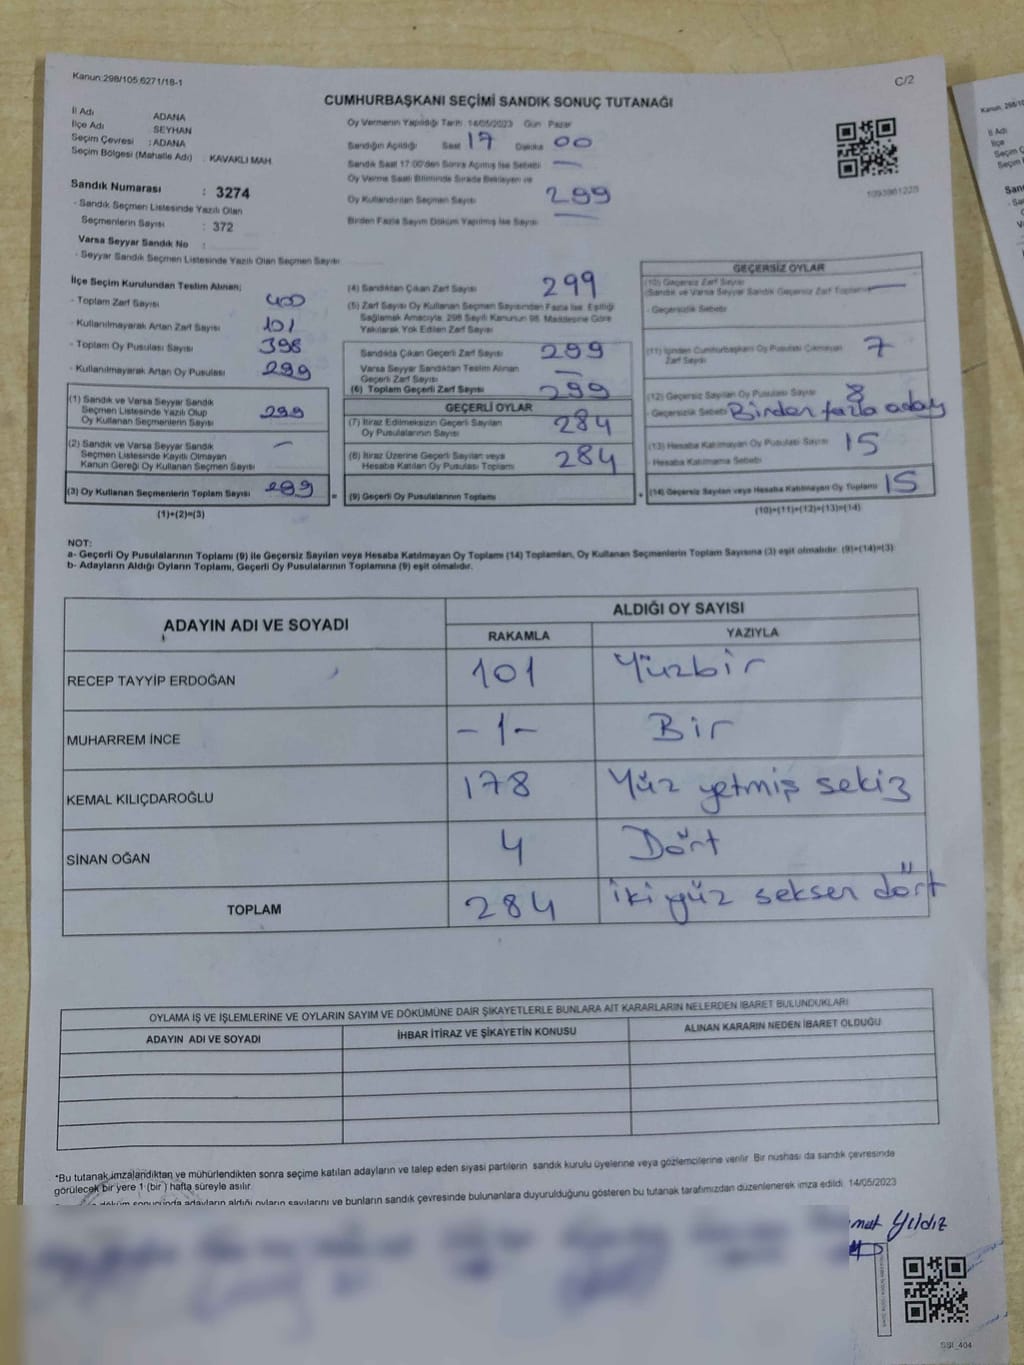 Kanun:298/105,6271/18-1
C/2
CUMHURBAŞKANI SEÇİMİ SANDIK SONUÇ TUTANAĞI
İl Adı ADANA
İlçe Adı SEYHAN
Seçim Çevresi : ADANA
Seçim Bölgesi (Mahalle Adı) : KAVAKLI MAH
Sandık Numarası : 3274
- Sandık Seçmen Listesinde Yazılı Olan
Seçmenlerin Sayısı : 372
Varsa Seyyar Sandık No :
- Seyyar Sandık Seçmen Listesinde Yazılı Olan Seçmen Sayısı
Oy Vermenin Yapıldığı Tarih 14/05/2023 Gün Pazar
Sandığın Açıldığı Saat 17 Dakika 00
Sandık Saat 17:00'den Sonra Açılmış İse Sebebi —
Oy Verme Saati Bitiminde Sırada Bekleyen ve
Oy Kullandırılan Seçmen Sayısı 299
Birden Fazla Sayım Döküm Yapılmış İse Sayısı —
1093961220
İlçe Seçim Kurulundan Teslim Alınan;
- Toplam Zarf Sayısı 400
- Kullanılmayarak Artan Zarf Sayısı 101
- Toplam Oy Pusulası Sayısı 398
- Kullanılmayarak Artan Oy Pusulası 299
(1) Sandık ve Varsa Seyyar Sandık
Seçmen Listesinde Yazılı Olup
Oy Kullanan Seçmenlerin Sayısı 299
(2) Sandık ve Varsa Seyyar Sandık
Seçmen Listesinde Kayıtlı Olmayan
Kanun Gereği Oy Kullanan Seçmen Sayısı —
(3) Oy Kullanan Seçmenlerin Toplam Sayısı 299
(1)+(2)=(3)
(4) Sandıktan Çıkan Zarf Sayısı 299
(5) Zarf Sayısı Oy Kullanan Seçmen Sayısından Fazla İse, Eşitliği
Sağlamak Amacıyla, 298 Sayılı Kanunun 98. Maddesine Göre
Yakılarak Yok Edilen Zarf Sayısı
Sandıkta Çıkan Geçerli Zarf Sayısı 299
Varsa Seyyar Sandıktan Teslim Alınan
Geçerli Zarf Sayısı —
(6) Toplam Geçerli Zarf Sayısı 299
GEÇERLİ OYLAR
(7) İtiraz Edilmeksizin Geçerli Sayılan
Oy Pusulalarının Sayısı 284
(8) İtiraz Üzerine Geçerli Sayılan veya
Hesaba Katılan Oy Pusulası Toplamı 284
= (9) Geçerli Oy Pusulalarının Toplamı
GEÇERSİZ OYLAR
(10) Geçersiz Zarf Sayısı
(Sandık ve Varsa Seyyar Sandık Geçersiz Zarf Toplamı) —
- Geçersizlik Sebebi
(11) İçinden Cumhurbaşkanı Oy Pusulası Çıkmayan
Zarf Sayısı 7
(12) Geçersiz Sayılan Oy Pusulası Sayısı 8
- Geçersizlik Sebebi Birden fazla aday
(13) Hesaba Katılmayan Oy Pusulası Sayısı 15
- Hesaba Katılmama Sebebi
+ (14) Geçersiz Sayılan veya Hesaba Katılmayan Oy Toplamı 15
(10)+(11)+(12)+(13)=(14)
NOT:
a- Geçerli Oy Pusulalarının Toplamı (9) ile Geçersiz Sayılan veya Hesaba Katılmayan Oy Toplamı (14) Toplamları, Oy Kullanan Seçmenlerin Toplam Sayısına (3) eşit olmalıdır. (9)+(14)=(3)
b- Adayların Aldığı Oyların Toplamı, Geçerli Oy Pusulalarının Toplamına (9) eşit olmalıdır.
ADAYIN ADI VE SOYADI ALDIĞI OY SAYISI
RAKAMLA YAZIYLA
RECEP TAYYİP ERDOĞAN 101 Yüzbir
MUHARREM İNCE -1- Bir
KEMAL KILIÇDAROĞLU 178 Yüz yetmiş sekiz
SİNAN OĞAN 4 Dört
TOPLAM 284 iki yüz seksen dört
OYLAMA İŞ VE İŞLEMLERİNE VE OYLARIN SAYIM VE DÖKÜMÜNE DAİR ŞİKAYETLERLE BUNLARA AİT KARARLARIN NELERDEN İBARET BULUNDUKLARI
ADAYIN ADI VE SOYADI İHBAR İTİRAZ VE ŞİKAYETİN KONUSU ALINAN KARARIN NEDEN İBARET OLDUĞU
*Bu tutanak imzalandıktan ve mühürlendikten sonra seçime katılan adayların ve talep eden siyasi partilerin sandık kurulu üyelerine veya gözlemcilerine verilir. Bir nüshası da sandık çevresinde
görülecek bir yere 1 (bir) hafta süreyle asılır.
döküm sonucunda adayların aldığı oyların sayılarını ve bunların sandık çevresinde bulunanlara duyurulduğunu gösteren bu tutanak tarafımızdan düzenlenerek imza edildi. 14/05/2023
Yıldız
SSİ_404